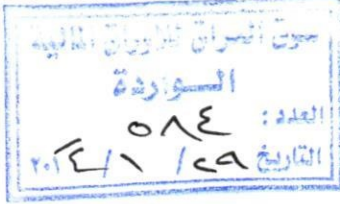 سوق العراق للاوراق المالية
الواردة
العدد: ٥٨٤
التاريخ ٢٩/١/٢٠١٤